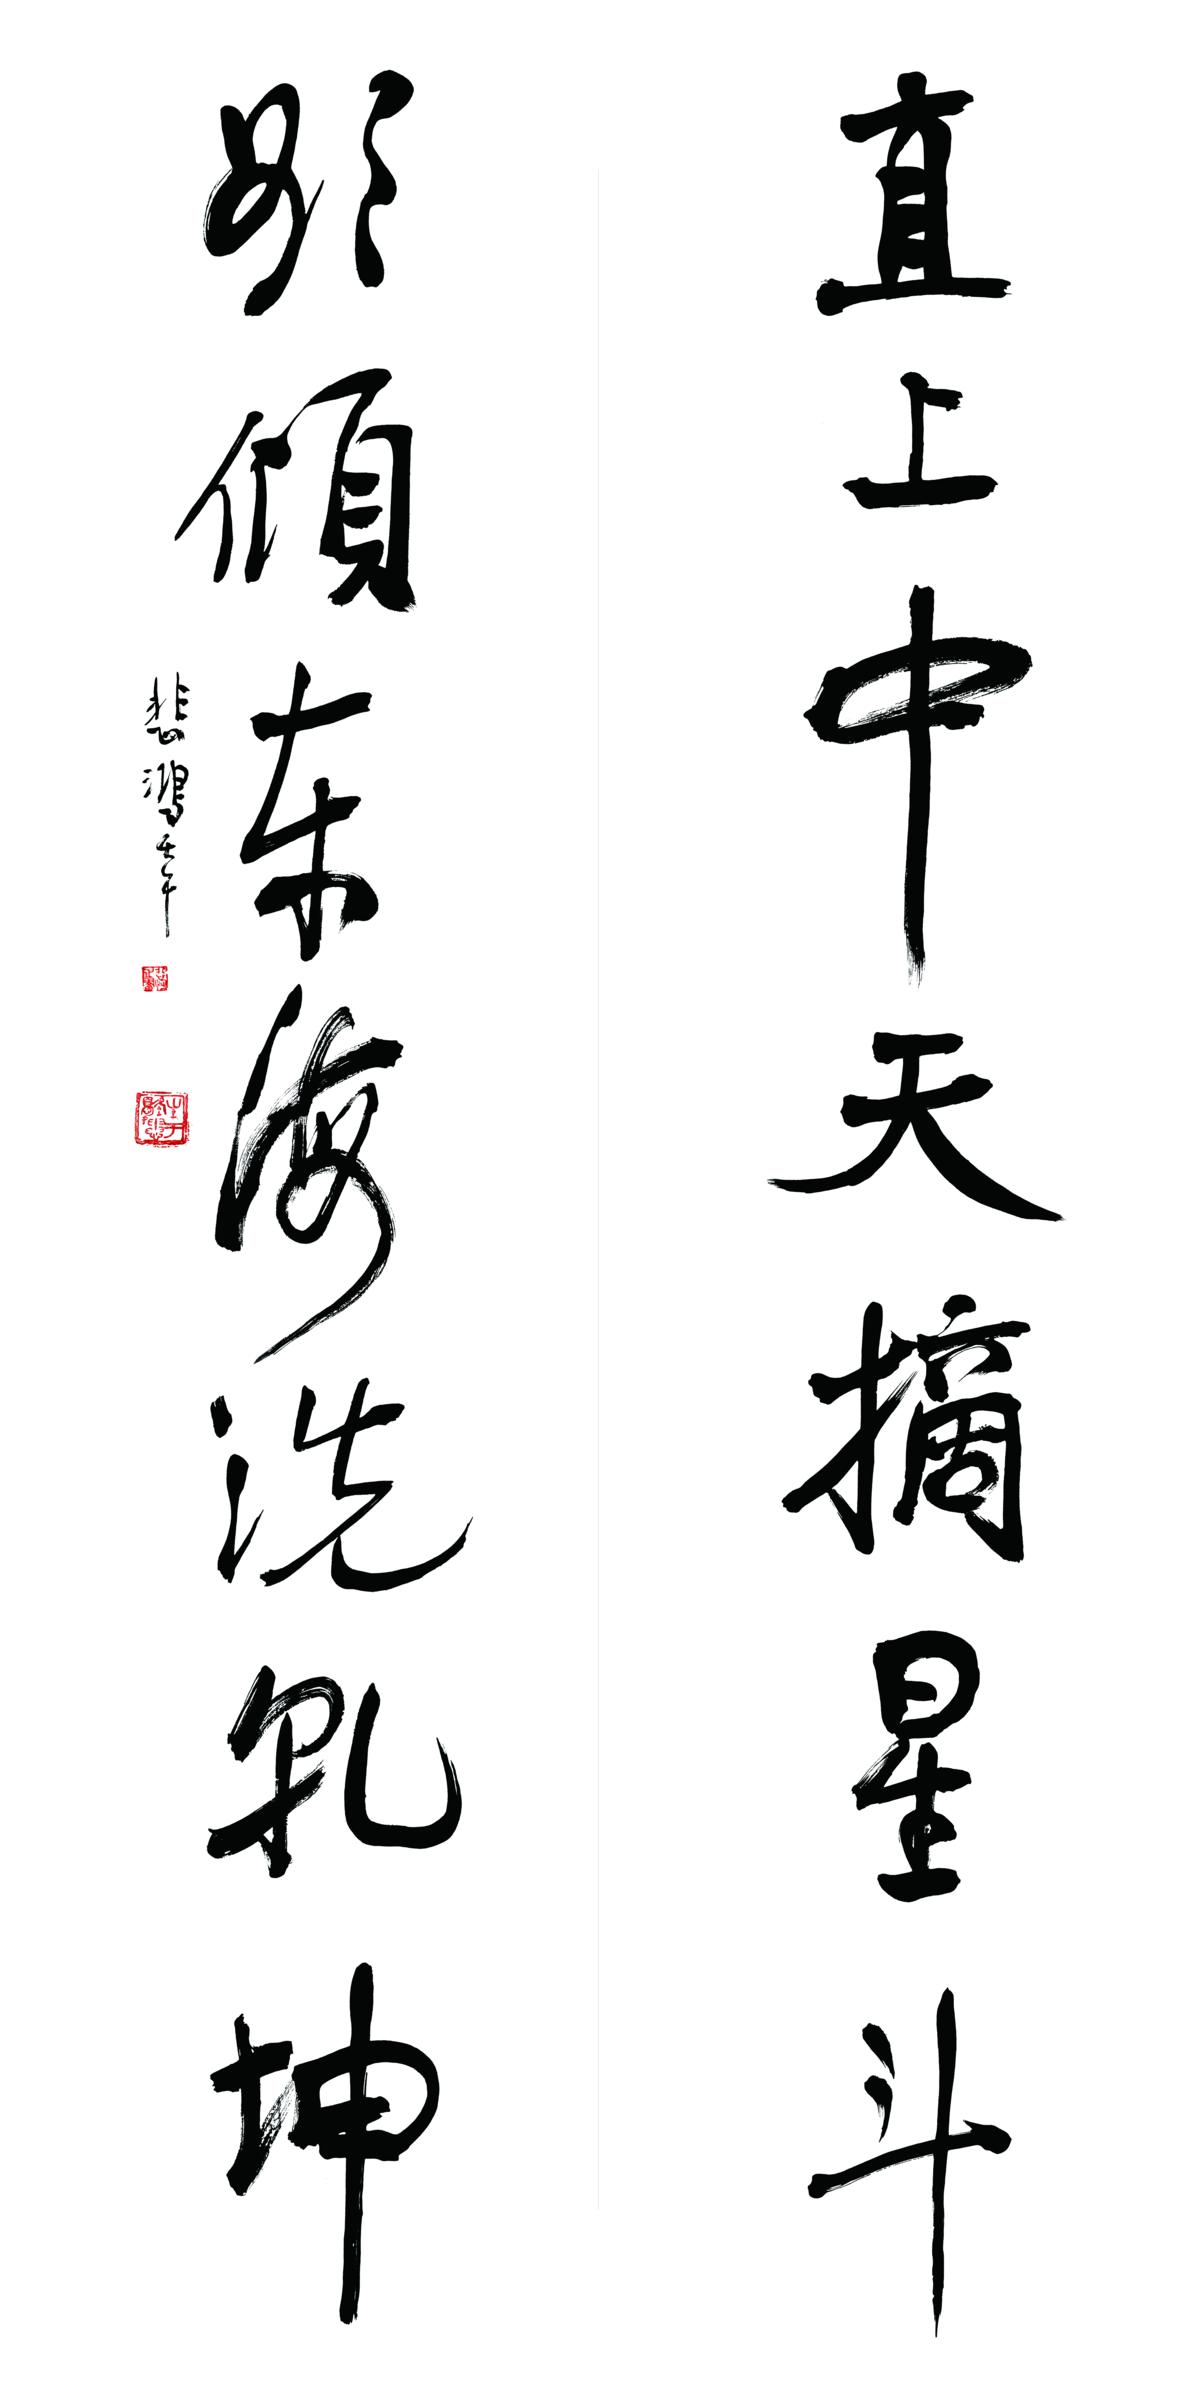 直上中天摘星斗
欲傾东海洗乾坤
悲鴻 壬午